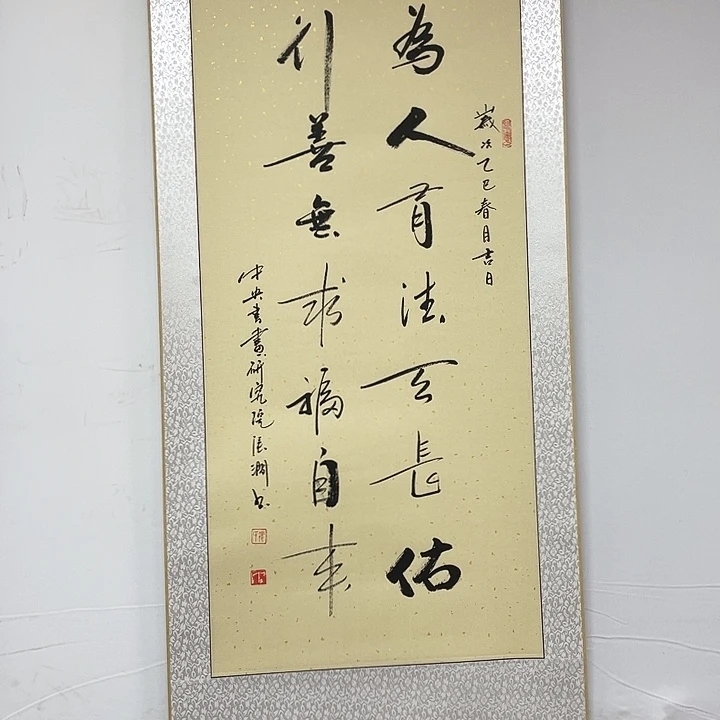 歲次乙巳春月吉日
為人有德天長佑
行善無求福自來
中央書畫研究院張书